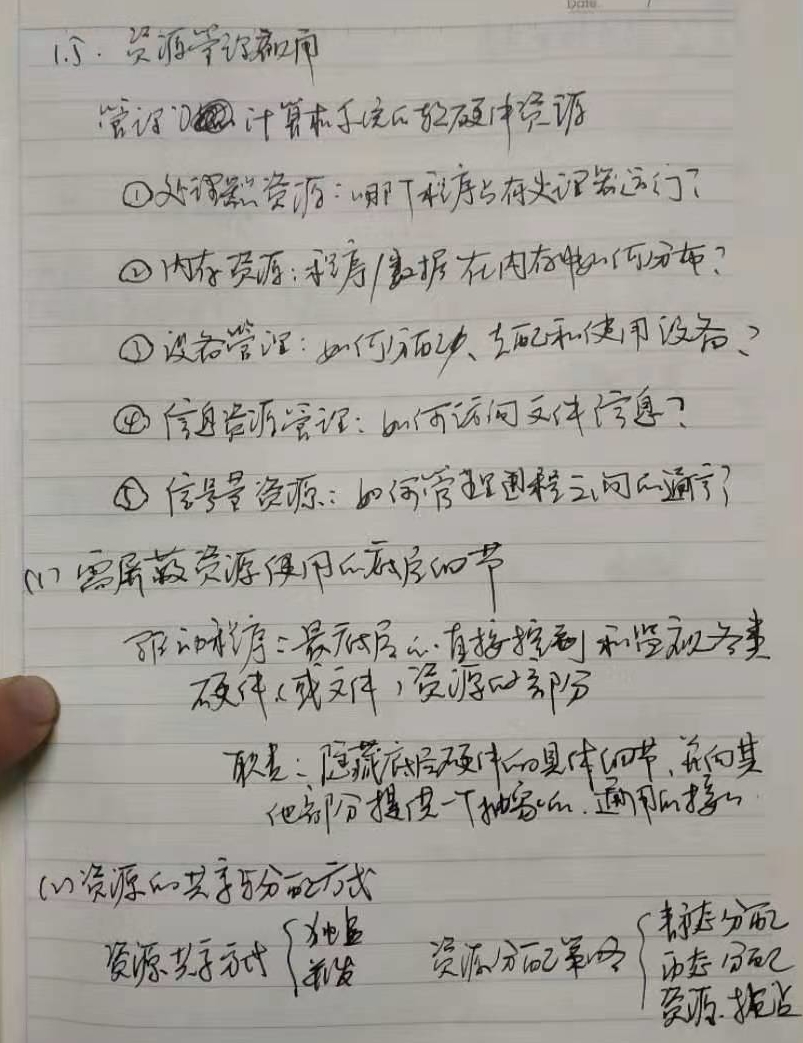 Date
1.5. 资源管理和应用
管理 计算机系统的软硬件资源
①处理器资源:哪个程序占有处理器运行?
②内存资源:程序/数据在内存中如何分布?
③设备管理:如何分配、去配和使用设备?
④信息资源管理:如何访问文件信息?
⑤信号量资源:如何管理进程之间的通信?
(1)需屏蔽资源使用的底层细节
驱动程序:最底层的.直接控制和监视各类
硬件(或文件)资源的部分
职责:隐藏底层硬件的具体细节,并向其
他部分提供一个抽象的.通用的接口.
(2)资源的共享与分配方式
资源共享方式 独占 并发 资源分配策略 静态分配 动态分配 资源抢占